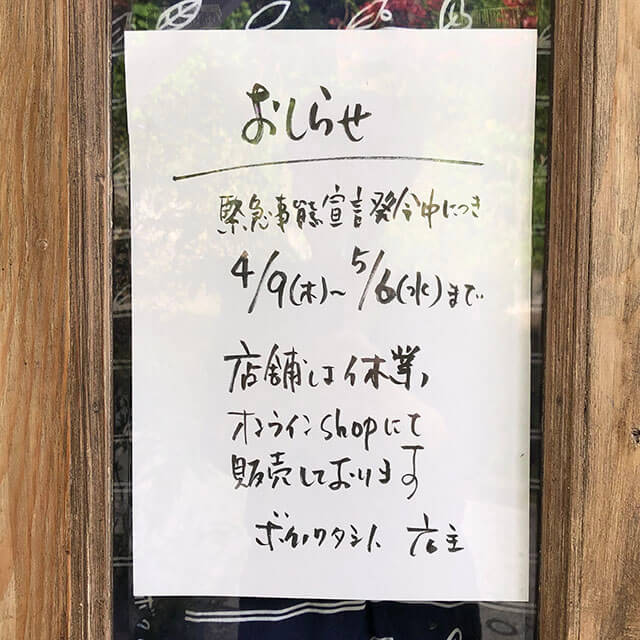 おしらせ
緊急事態宣言発令中につき
4/9(木)～5/6(水)まで
店舗は休業、
オンラインshopにて
販売しております
店主